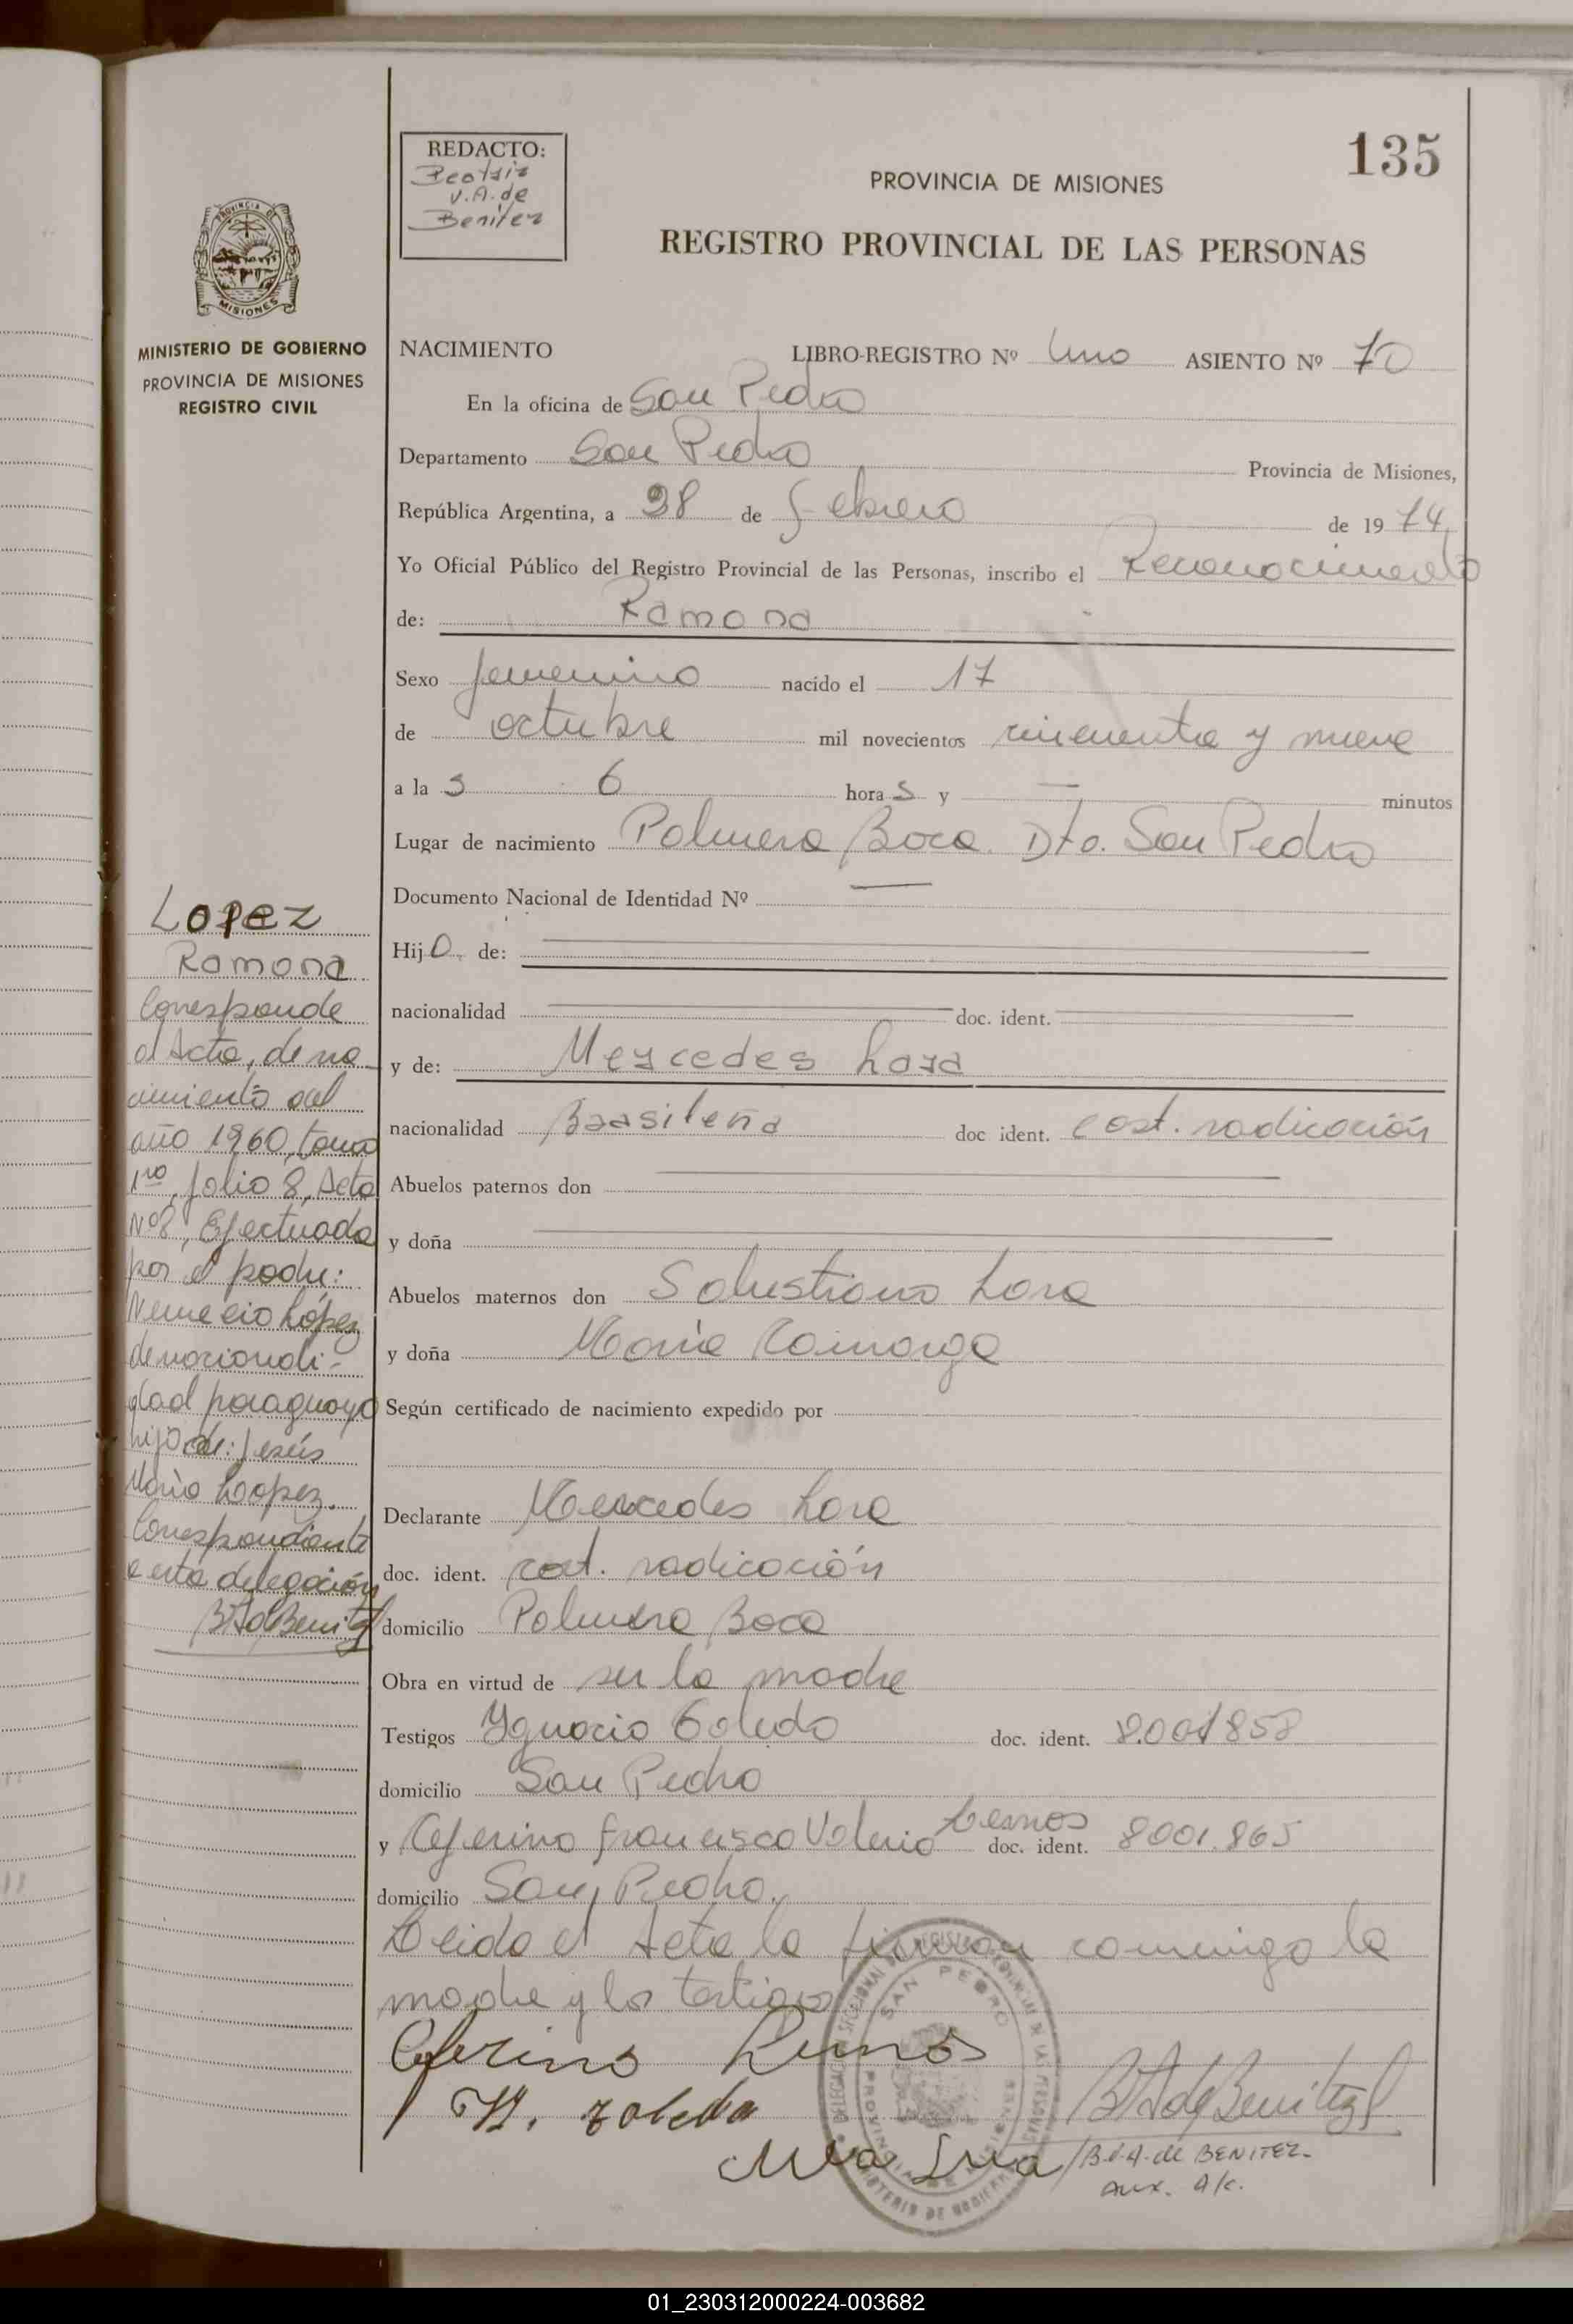 135
REDACTO:
Beatriz
V.A. de
Benitez
PROVINCIA DE MISIONES
REGISTRO PROVINCIAL DE LAS PERSONAS
PROVINCIA DE
MISIONES
MINISTERIO DE GOBIERNO
PROVINCIA DE MISIONES
REGISTRO CIVIL
NACIMIENTO LIBRO-REGISTRO Nº Uno ASIENTO Nº 70
En la oficina de San Pedro
Departamento San Pedro Provincia de Misiones,
República Argentina, a 28 de febrero de 1974
Yo Oficial Público del Registro Provincial de las Personas, inscribo el Reconocimiento
de: Ramona
Sexo femenino nacido el 17
de octubre mil novecientos cincuenta y nueve
a la s 6 hora s y — minutos
Lugar de nacimiento Palmera Boca. Dto. San Pedro
Documento Nacional de Identidad Nº —
Hij a de:
nacionalidad doc. ident.
y de: Mercedes Lara
nacionalidad Brasileña doc ident. cost. radicación
Abuelos paternos don
y doña
Abuelos maternos don Salustiano Lara
y doña María Camargo
Según certificado de nacimiento expedido por
Declarante Mercedes Lara
doc. ident. cost. radicación
domicilio Palmera Boca
Obra en virtud de ser la madre
Testigos Ygnacio Toledo doc. ident. 8.001858
domicilio San Pedro
y Ceferino Francisco Valerio Lemos doc. ident. 8001.865
domicilio San Pedro.
Leida el Acta la firman conmigo la
madre y los testigos
Ceferino Lemos
Toledo
BVAdeBenitez
B.V.A. de BENITEZ
Aux. a/c.
SAN PEDRO
Lopez
Ramona
Corresponde
al Acta, de na-
cimiento del
año 1960, tomo
1ro, folio 8, Acta
Nº8, Efectuada
por el padre:
Nemecio López
de nacionali-
dad paraguayo
hijo de: Jesús
María Loopez.
Correspondiente
a esta delegación
BVAdeBenitez
01_230312000224-003682